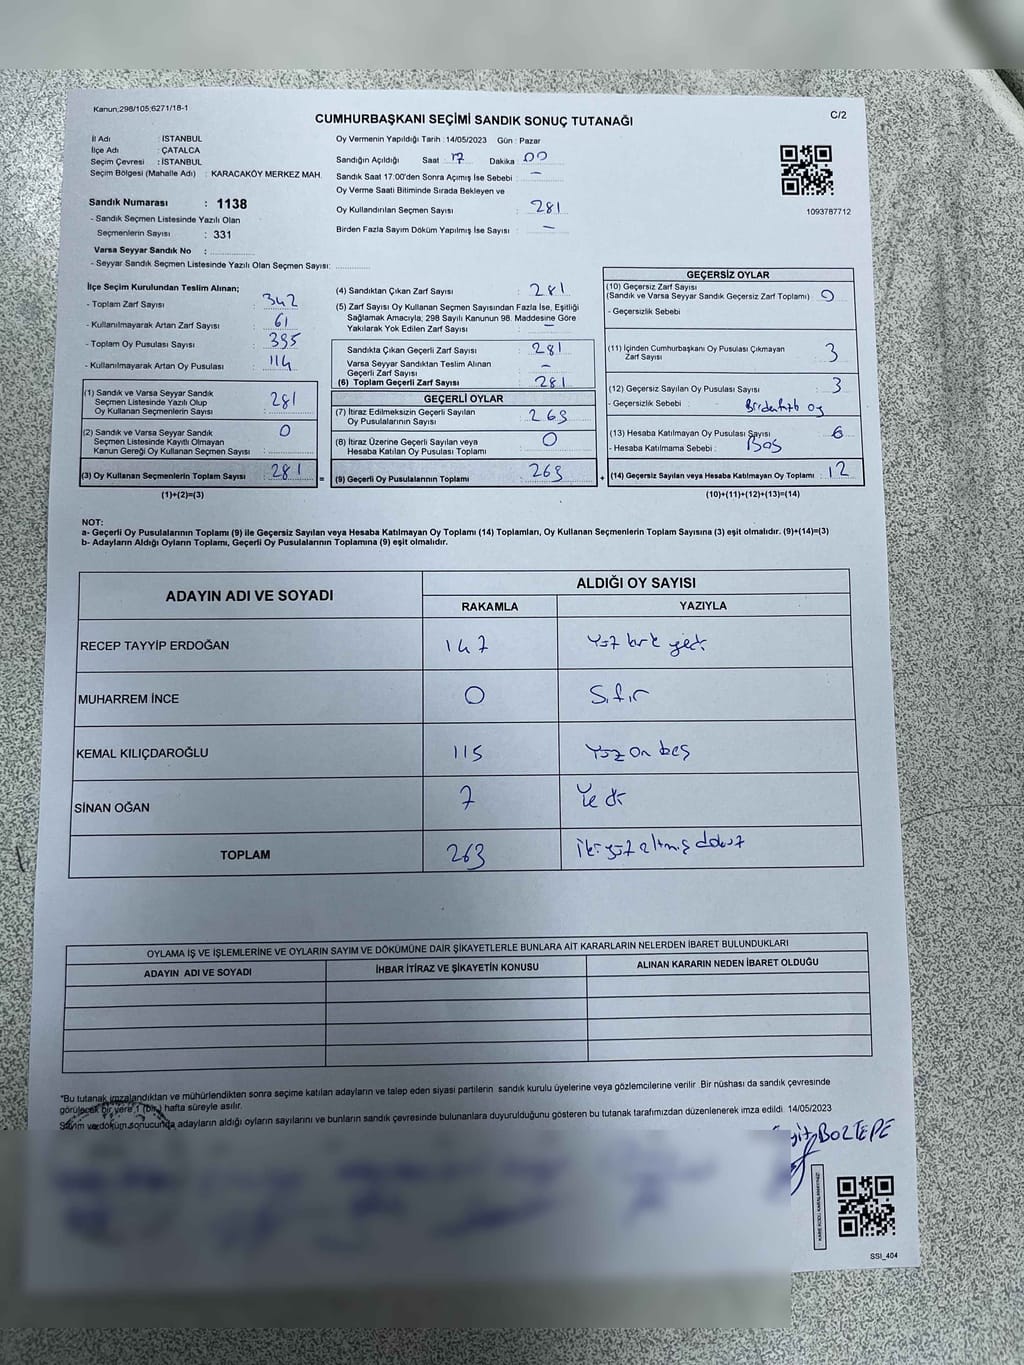 Kanun:298/105;6271/18-1
C/2
CUMHURBAŞKANI SEÇİMİ SANDIK SONUÇ TUTANAĞI
İl Adı : İSTANBUL
İlçe Adı : ÇATALCA
Seçim Çevresi : İSTANBUL
Seçim Bölgesi (Mahalle Adı) : KARACAKÖY MERKEZ MAH.
Sandık Numarası : 1138
- Sandık Seçmen Listesinde Yazılı Olan
Seçmenlerin Sayısı : 331
Varsa Seyyar Sandık No :
- Seyyar Sandık Seçmen Listesinde Yazılı Olan Seçmen Sayısı:
Oy Vermenin Yapıldığı Tarih : 14/05/2023 Gün : Pazar
Sandığın Açıldığı Saat : 17 Dakika : 00
Sandık Saat 17:00'den Sonra Açımış İse Sebebi : -
Oy Verme Saati Bitiminde Sırada Bekleyen ve
Oy Kullandırılan Seçmen Sayısı : 281
Birden Fazla Sayım Döküm Yapılmış İse Sayısı : -
1093787712
İlçe Seçim Kurulundan Teslim Alınan;
- Toplam Zarf Sayısı : 342
- Kullanılmayarak Artan Zarf Sayısı : 61
- Toplam Oy Pusulası Sayısı : 395
- Kullanılmayarak Artan Oy Pusulası : 114
(1) Sandık ve Varsa Seyyar Sandık
Seçmen Listesinde Yazılı Olup
Oy Kullanan Seçmenlerin Sayısı : 281
(2) Sandık ve Varsa Seyyar Sandık
Seçmen Listesinde Kayıtlı Olmayan
Kanun Gereği Oy Kullanan Seçmen Sayısı : 0
(3) Oy Kullanan Seçmenlerin Toplam Sayısı : 281
(1)+(2)=(3)
(4) Sandıktan Çıkan Zarf Sayısı : 281
(5) Zarf Sayısı Oy Kullanan Seçmen Sayısından Fazla İse, Eşitliği
Sağlamak Amacıyla; 298 Sayılı Kanunun 98. Maddesine Göre
Yakılarak Yok Edilen Zarf Sayısı : -
Sandıkta Çıkan Geçerli Zarf Sayısı : 281
Varsa Seyyar Sandıktan Teslim Alınan
Geçerli Zarf Sayısı : -
(6) Toplam Geçerli Zarf Sayısı : 281
GEÇERLİ OYLAR
(7) İtiraz Edilmeksizin Geçerli Sayılan
Oy Pusulalarının Sayısı : 269
(8) İtiraz Üzerine Geçerli Sayılan veya
Hesaba Katılan Oy Pusulası Toplamı : 0
= (9) Geçerli Oy Pusulalarının Toplamı : 269
GEÇERSİZ OYLAR
(10) Geçersiz Zarf Sayısı
(Sandık ve Varsa Seyyar Sandık Geçersiz Zarf Toplamı) : 0
- Geçersizlik Sebebi
(11) İçinden Cumhurbaşkanı Oy Pusulası Çıkmayan
Zarf Sayısı : 3
(12) Geçersiz Sayılan Oy Pusulası Sayısı : 3
- Geçersizlik Sebebi : Birden fazla oy
(13) Hesaba Katılmayan Oy Pusulası Sayısı : 6
- Hesaba Katılmama Sebebi : Boş
+ (14) Geçersiz Sayılan veya Hesaba Katılmayan Oy Toplamı : 12
(10)+(11)+(12)+(13)=(14)
NOT:
a- Geçerli Oy Pusulalarının Toplamı (9) ile Geçersiz Sayılan veya Hesaba Katılmayan Oy Toplamı (14) Toplamları, Oy Kullanan Seçmenlerin Toplam Sayısına (3) eşit olmalıdır. (9)+(14)=(3)
b- Adayların Aldığı Oyların Toplamı, Geçerli Oy Pusulalarının Toplamına (9) eşit olmalıdır.
ADAYIN ADI VE SOYADI
ALDIĞI OY SAYISI
RAKAMLA YAZIYLA
RECEP TAYYİP ERDOĞAN 147 Yüz kırk yedi
MUHARREM İNCE 0 Sıfır
KEMAL KILIÇDAROĞLU 115 Yüz on beş
SİNAN OĞAN 7 Yedi
TOPLAM 269 İki yüz altmış dokuz
OYLAMA İŞ VE İŞLEMLERİNE VE OYLARIN SAYIM VE DÖKÜMÜNE DAİR ŞİKAYETLERLE BUNLARA AİT KARARLARIN NELERDEN İBARET BULUNDUKLARI
ADAYIN ADI VE SOYADI İHBAR İTİRAZ VE ŞİKAYETİN KONUSU ALINAN KARARIN NEDEN İBARET OLDUĞU
*Bu tutanak imzalandıktan ve mühürlendikten sonra seçime katılan adayların ve talep eden siyasi partilerin sandık kurulu üyelerine veya gözlemcilerine verilir. Bir nüshası da sandık çevresinde
görülecek bir yere 1 (bir) hafta süreyle asılır.
Sayım ve döküm sonucunda adayların aldığı oyların sayılarını ve bunların sandık çevresinde bulunanlara duyurulduğunu gösteren bu tutanak tarafımızdan düzenlenerek imza edildi. 14/05/2023
BOZTEPE
SSI_404